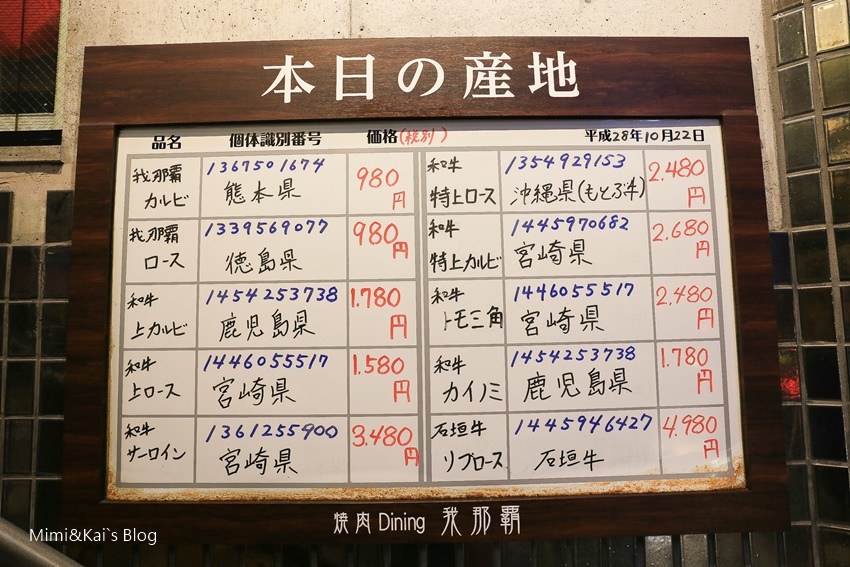 本日の産地
品名 個体識別番号 価格(税別) 平成28年10月22日
我那覇 1367501674 980
カルビ 熊本県 円
我那覇 1339569077 980
ロース 徳島県 円
和牛 1454253738 1.780
上カルビ 鹿児島県 円
和牛 1446055517 1.580
上ロース 宮崎県 円
和牛 1361255900 3.480
サーロイン 宮崎県 円
和牛 1354929153 2.480
特上ロース 沖縄県(もとぶ牛) 円
和牛 1445970682 2.680
特上カルビ 宮崎県 円
和牛 1446055517 2.480
トモ三角 宮崎県 円
和牛 1454253738 1.780
カイノミ 鹿児島県 円
石垣牛 1445946427 4.980
リブロース 石垣牛 円
焼肉 Dining 我那覇
Mimi&Kai`s Blog